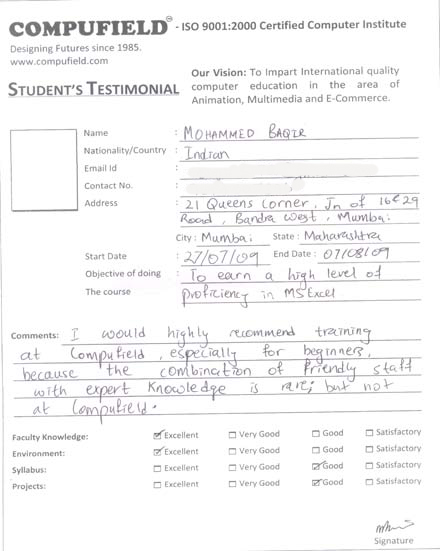 COMPUFIELD® - ISO 9001:2000 Certified Computer Institute
Designing Futures since 1985.
www.compufield.com
Our Vision: To Impart International quality
STUDENT'S TESTIMONIAL computer education in the area of
Animation, Multimedia and E-Commerce.
Name : MOHAMMED BAQIR
Nationality/Country : Indian
Email Id :
Contact No. :
Address : 21 Queens Corner, Jn of 16 & 29
Road, Bandra West, Mumbai
City : Mumbai State : Maharashtra
Start Date : 27/07/09 End Date : 07/08/09
Objective of doing : To earn a high level of
The course proficiency in MS Excel
Comments: I would highly recommend training
at Compufield, especially for beginners,
because the combination of friendly staff
with expert knowledge is rare; but not
at Compufield.
Faculty Knowledge: ☑ Excellent ☐ Very Good ☐ Good ☐ Satisfactory
Environment: ☑ Excellent ☐ Very Good ☐ Good ☐ Satisfactory
Syllabus: ☐ Excellent ☐ Very Good ☑ Good ☐ Satisfactory
Projects: ☐ Excellent ☐ Very Good ☑ Good ☐ Satisfactory
Signature